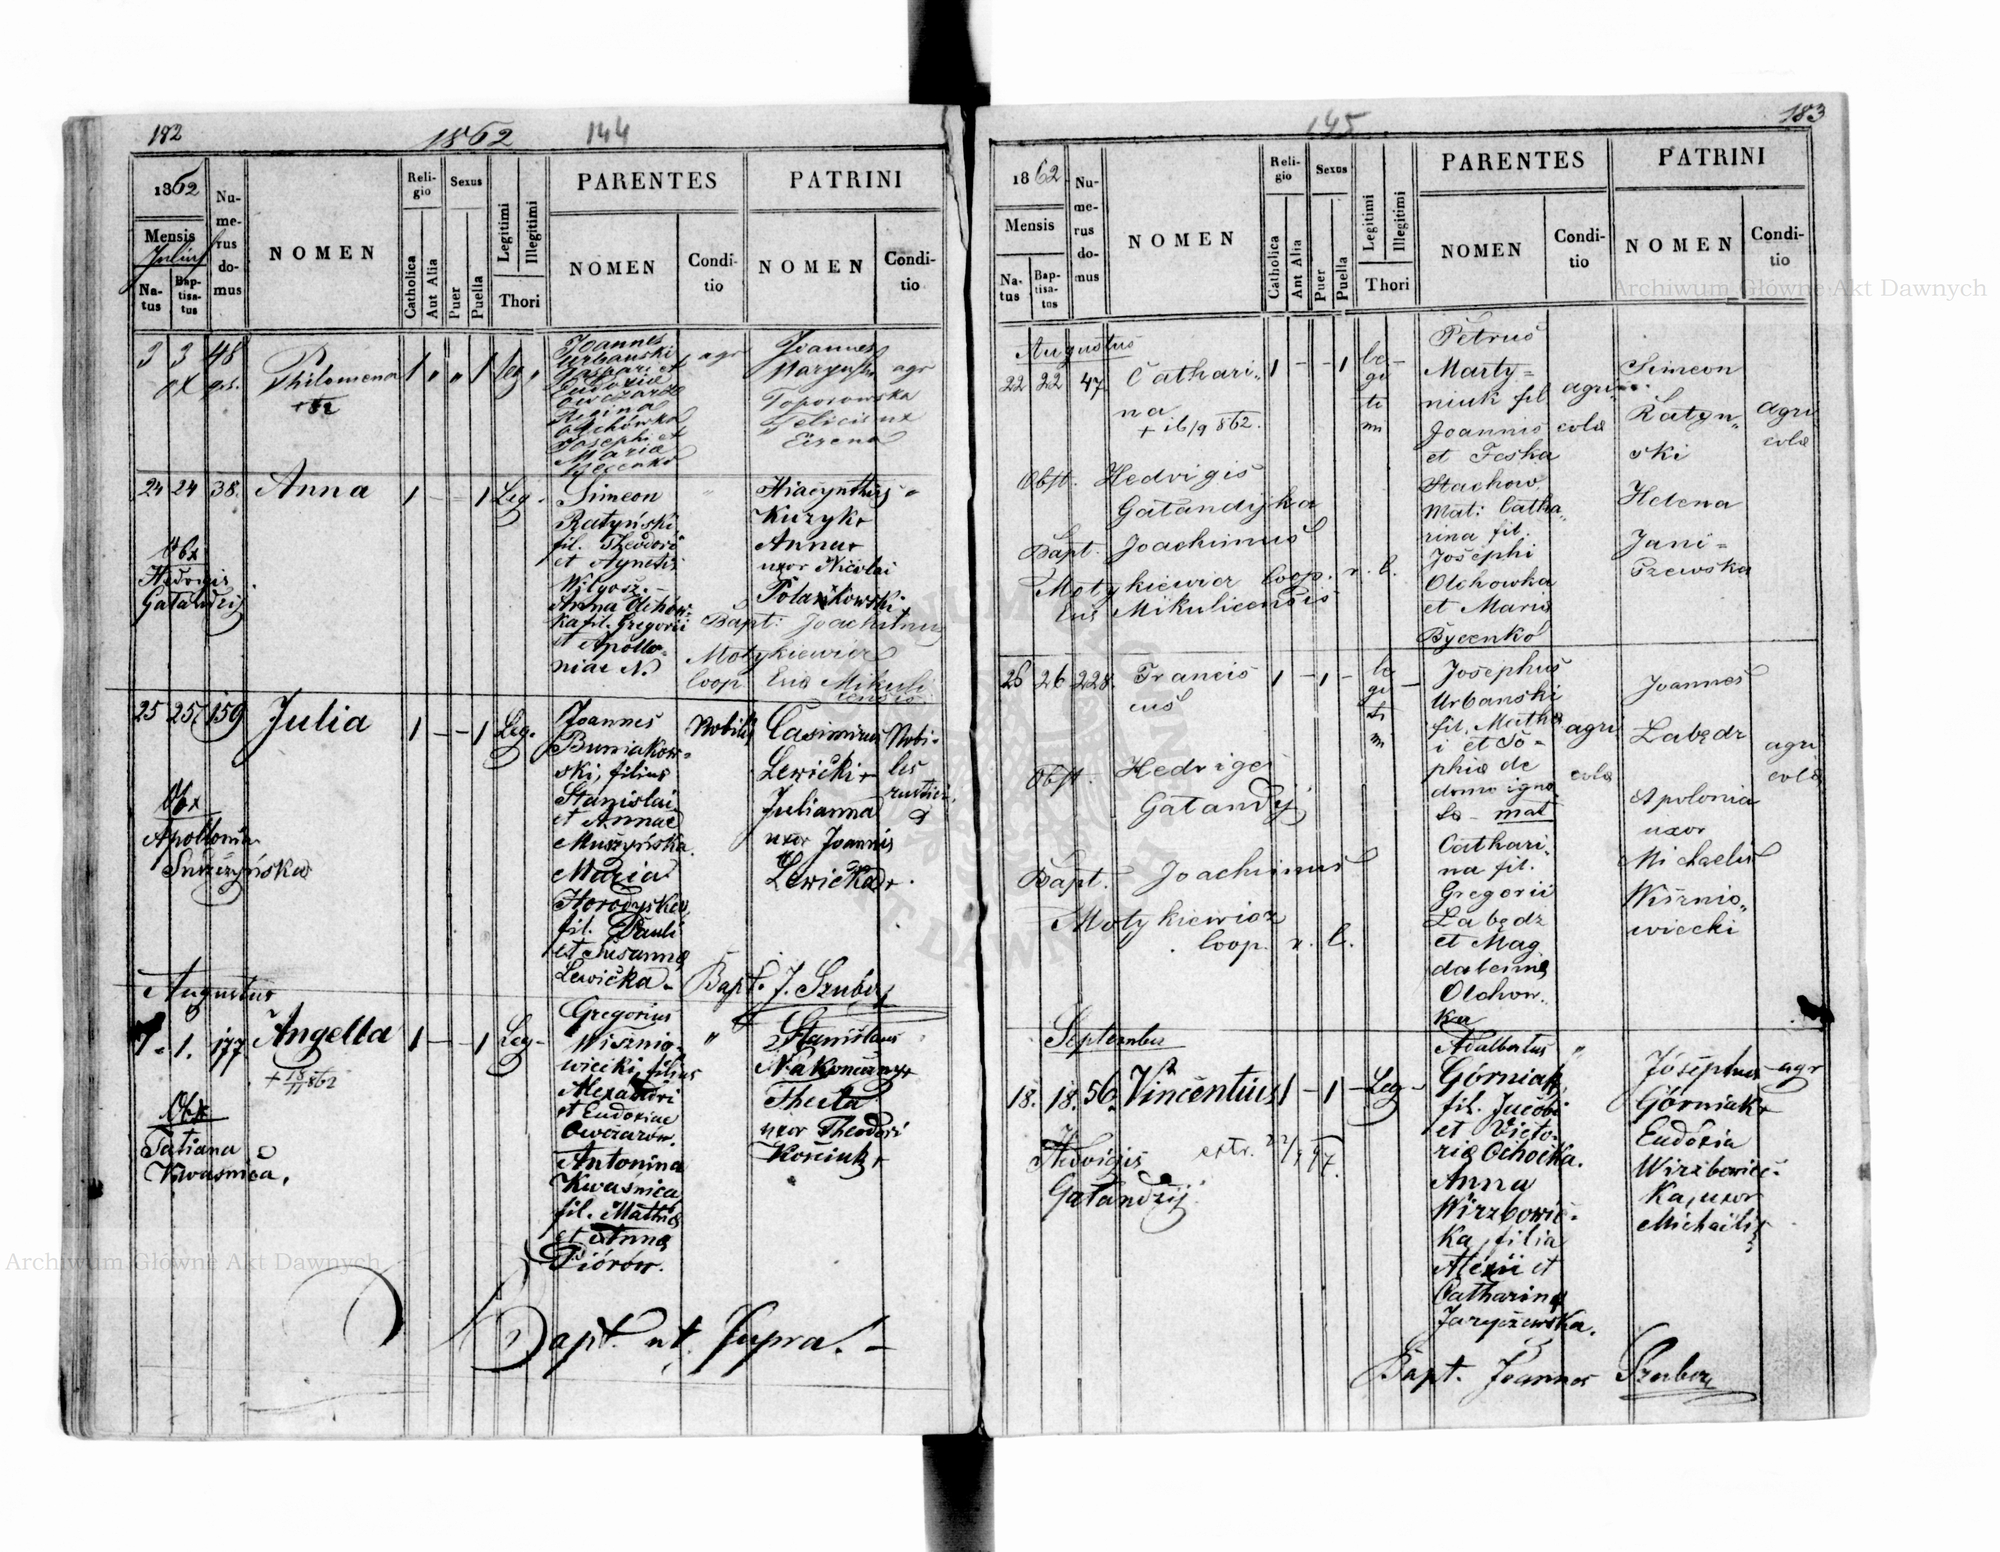 182
1862
144
1862
Mensis
Julius
Natus
Baptisatus
Numerus domus
NOMEN
Religio
Catholica
Aut Alia
Sexus
Puer
Puella
Legitimi
Illegitimi
Thori
PARENTES
NOMEN
Conditio
PATRINI
NOMEN
Conditio
3 3 48
Philomena
1 " " 1 leg "
Joannes
Urbanski
Gaspari et
Eudoxia
Owczarz
Regina
Olchówka
Josephi et
Maria
Bycenko
agr
Joannes
agr
Toporowska
24 24 38.
Anna
1 - - 1 Leg -
Obx
Hedvigis
Gałandzij
Simeon
Ratyński
fil. Theodori
et Agnetis
Wilgosz. -
Anna Olchów-
ka fil. Gregorii
et Apollo-
niae N.
Hiacynthus
Kuzyk +
Anna +
uxor Nicolai
Polańkowski.
Bapt: Joachimus
Motykiewicz
Coop. Eccl. Mikuli
censis
25 25 159
Julia
1 - - 1 Leg.
Obx
Apollonia
Suszczyńska
Joannes
Buniakow-
ski, filius
Stanislai
et Annae
Muszyńska.
Maria
Horodyska
fil. Pauli
et Susanna
Lewicka.
Nobilis
Casimirus
Lewicki +
Julianna
uxor Joannis
Lewicka +.
Nobi-
les
rustici
Bapt. J. Szuber
Augustus
1. 1. 177
Angella
+ 18/11 862
1 - - 1 Leg -
Obx
Tatiana
Kwasnica.
Gregorius
Wisznio-
wiecki, filius
Alexandri
et Eudoxiae
Owczarow.
Antonina
Kwasnica
fil. Mathia
et Anna
Piórów.
"
Stanislaus
Nakoneczny +
Thecla
uxor Theodori
Kosciuk +
Bapt. ut Supra. -
183
145
1862
Mensis
Natus
Baptisatus
Numerus domus
NOMEN
Religio
Catholica
Aut Alia
Sexus
Puer
Puella
Legitimi
Illegitimi
Thori
PARENTES
NOMEN
Conditio
PATRINI
NOMEN
Conditio
Augustus
22 22 47
Cathari-
na
+ 16/9 862.
1 - - 1
le
gi
ti
mi
Obst. Hedvigis
Gałandyka
Bapt. Joachimus
Motykiewicz Coop. r. l.
Ecc Mikulicensis
Petrus
Marty-
niuk fil
Joannis
et Feska
Stachow.
Mat: Catha-
rina fil.
Josephi
Olchowka
et Maria
Bycenko
agri-
colae
Simeon
Ratyn-
ski
Helena
Jani-
szewska
agri
colae
26 26 228.
Francis
cus
1 - 1 -
le
gi
ti
mi
Obst. Hedviges
Gałandij
Bapt. Joachimus
Motykiewicz
Coop. r. l.
Josephus
Urbanski
fil. Mathe
i et So-
phia de
domo igno-
ta - mat
Cathari-
na fil.
Gregorii
Łabędz
et Mag
dalenna
Olchow.
ka
agri
colae
Joannes
Łabędz
Apolonia
uxor
Michaelis
Wisznio-
wiecki
agri
colae
September
18. 18. 56.
Vincentius
1 - 1 - Leg -
Hedvigis
Gałandzij
extr. 22/9 97.
Adalbertus
Górniak,
fil. Jacobi
et Victo-
ria Ochocka.
Anna
Wirzbowic-
ka, filia
Alexii et
Catharina
Jaryczewska.
"
Josephus
Górniak +
Eudoxia
Wirzbowiec-
ka, uxor
Michaelis
agr
Bapt. Joannes Szuber
Archiwum Główne Akt Dawnych
Archiwum Główne Akt Dawnych